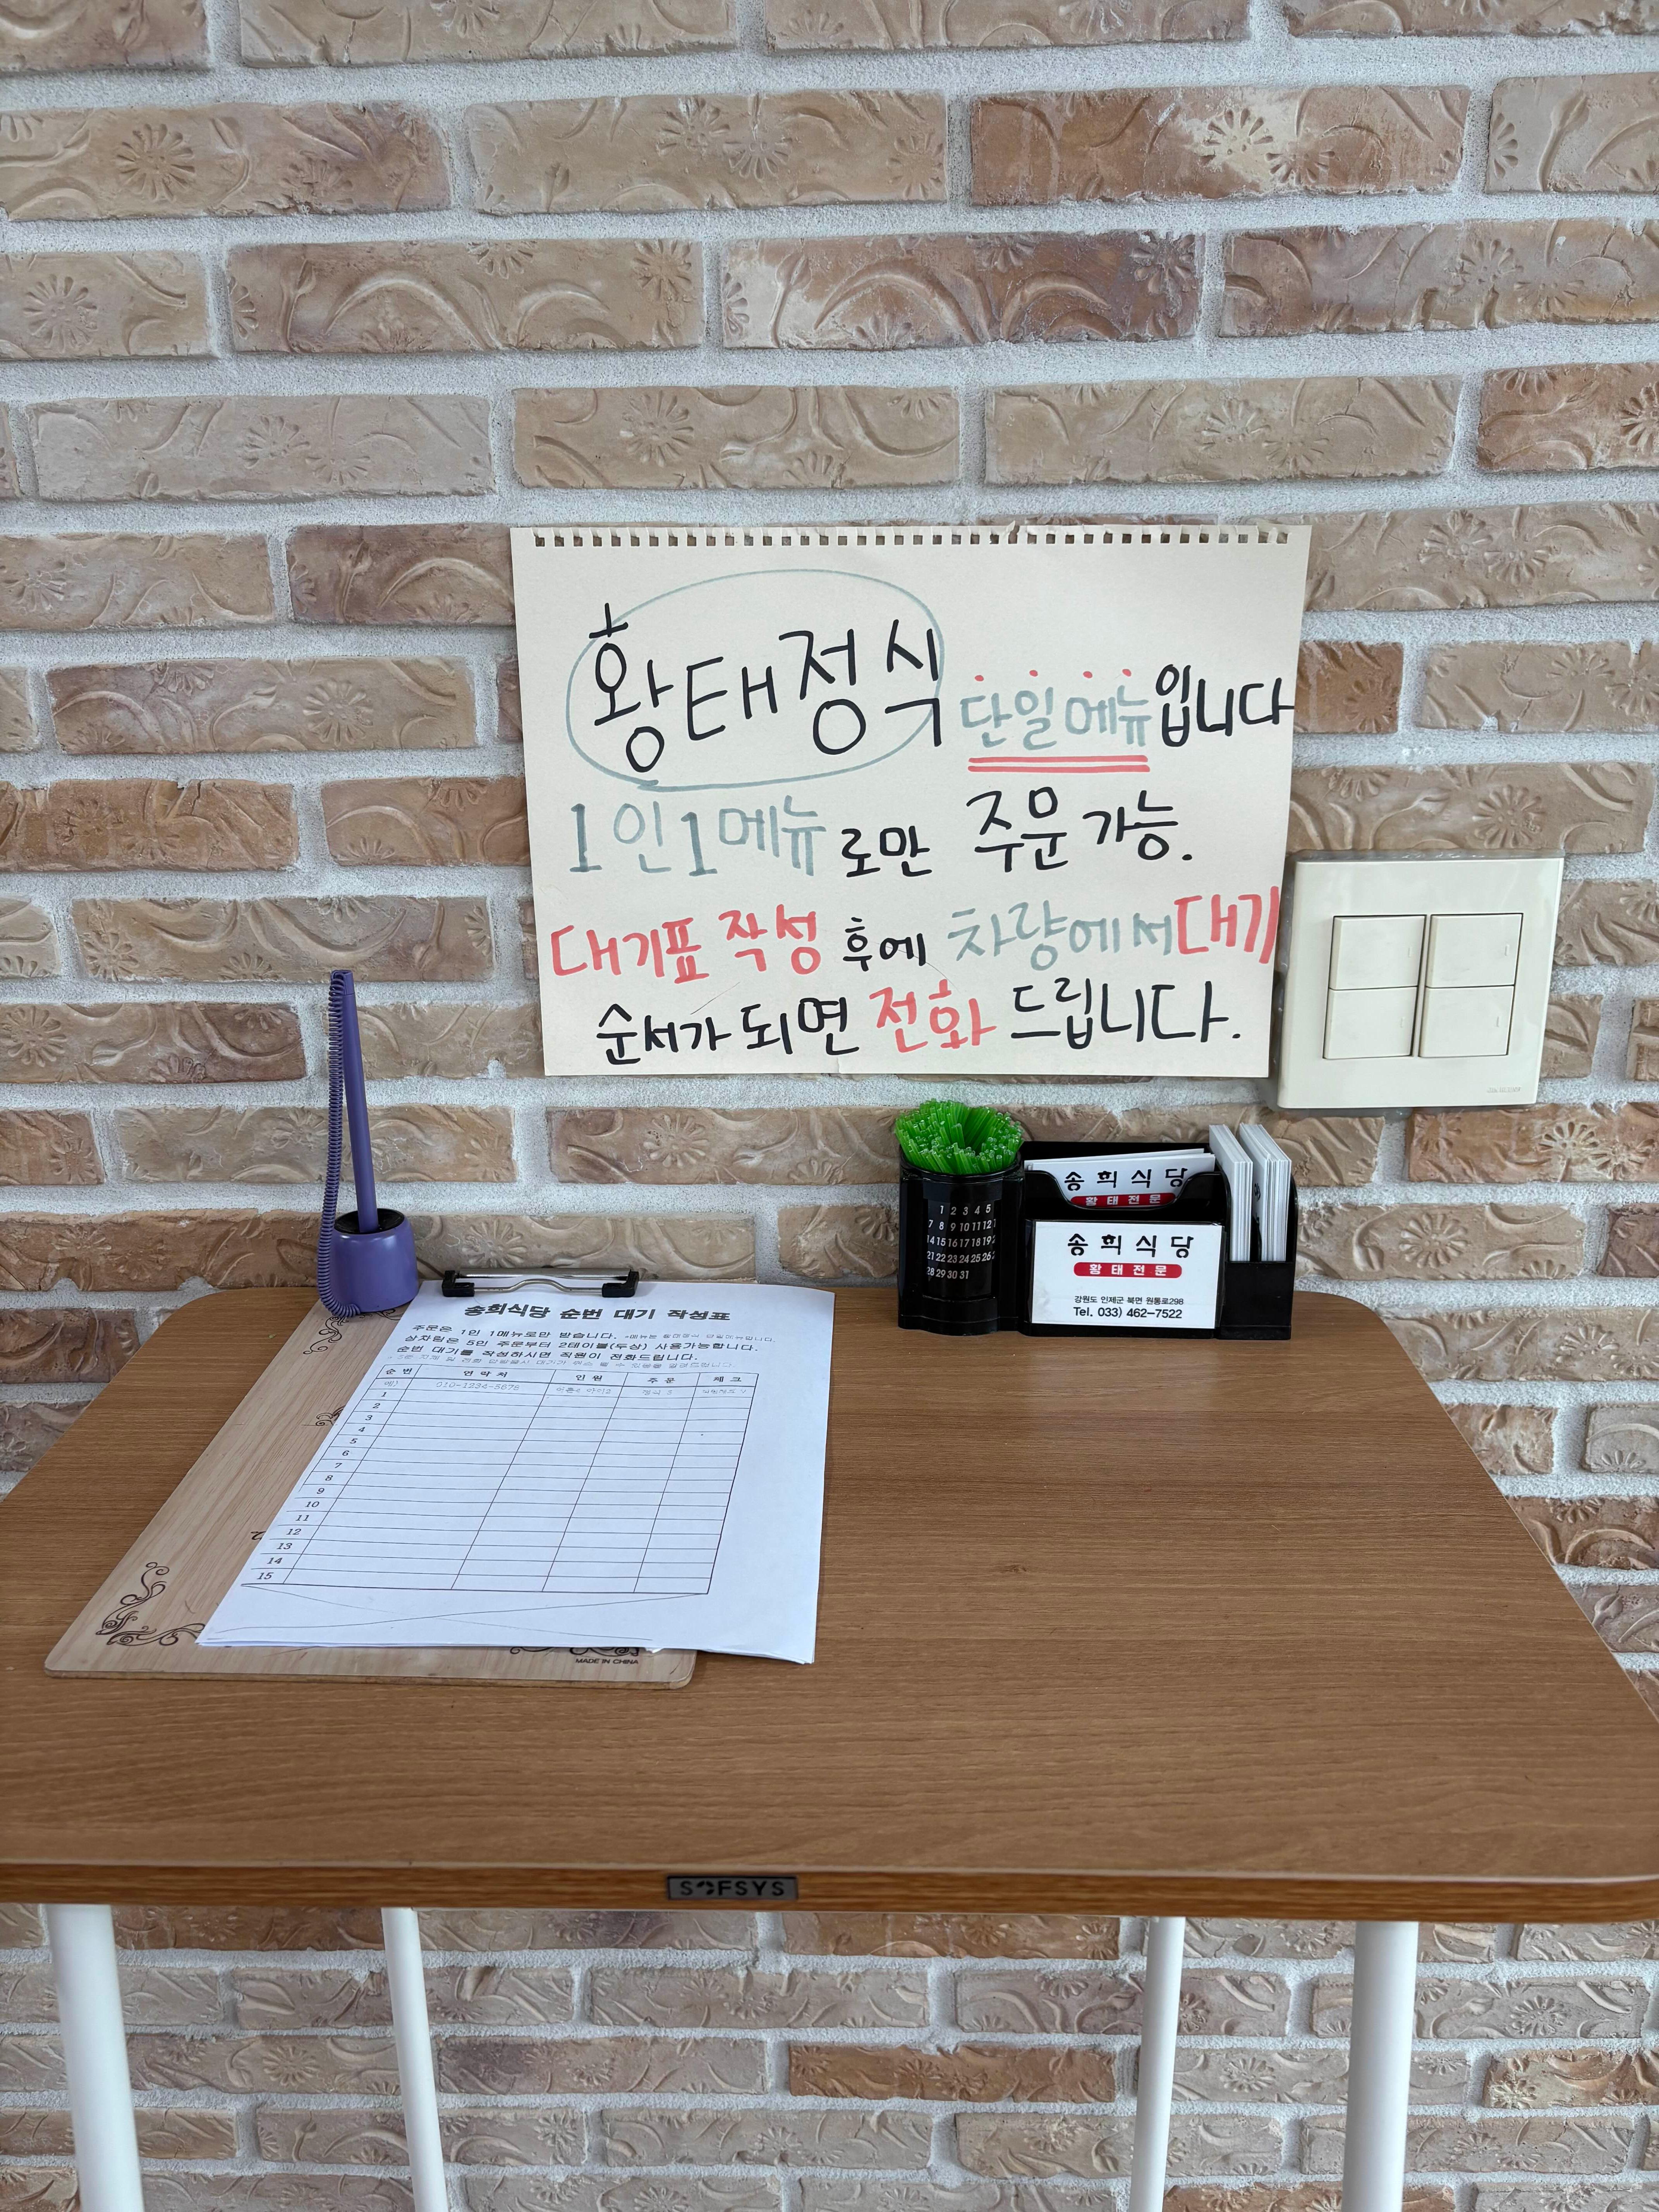 황태정식 단일메뉴입니다
1인1메뉴로만 주문가능.
대기표 작성 후에 차량에서대기
순서가 되면 전화 드립니다.
송희식당
황태전문
송희식당
황태전문
강원도 인제군 북면 원통로298
Tel. 033) 462-7522
1 2 3 4 5
7 8 9 10 11 12
14 15 16 17 18 19
21 22 23 24 25 26
28 29 30 31
송희식당 순번 대기 작성표
주문은 1인 1메뉴로만 받습니다.
상차림은 5인 주문부터 2테이블(두상) 사용가능합니다.
순번 대기를 작성하시면 직원이 전화드립니다.
순번 연락처 인원 주문 체크
예) 010-1234-5678
1
2
3
4
5
6
7
8
9
10
11
12
13
14
15
MADE IN CHINA
SOFSYS